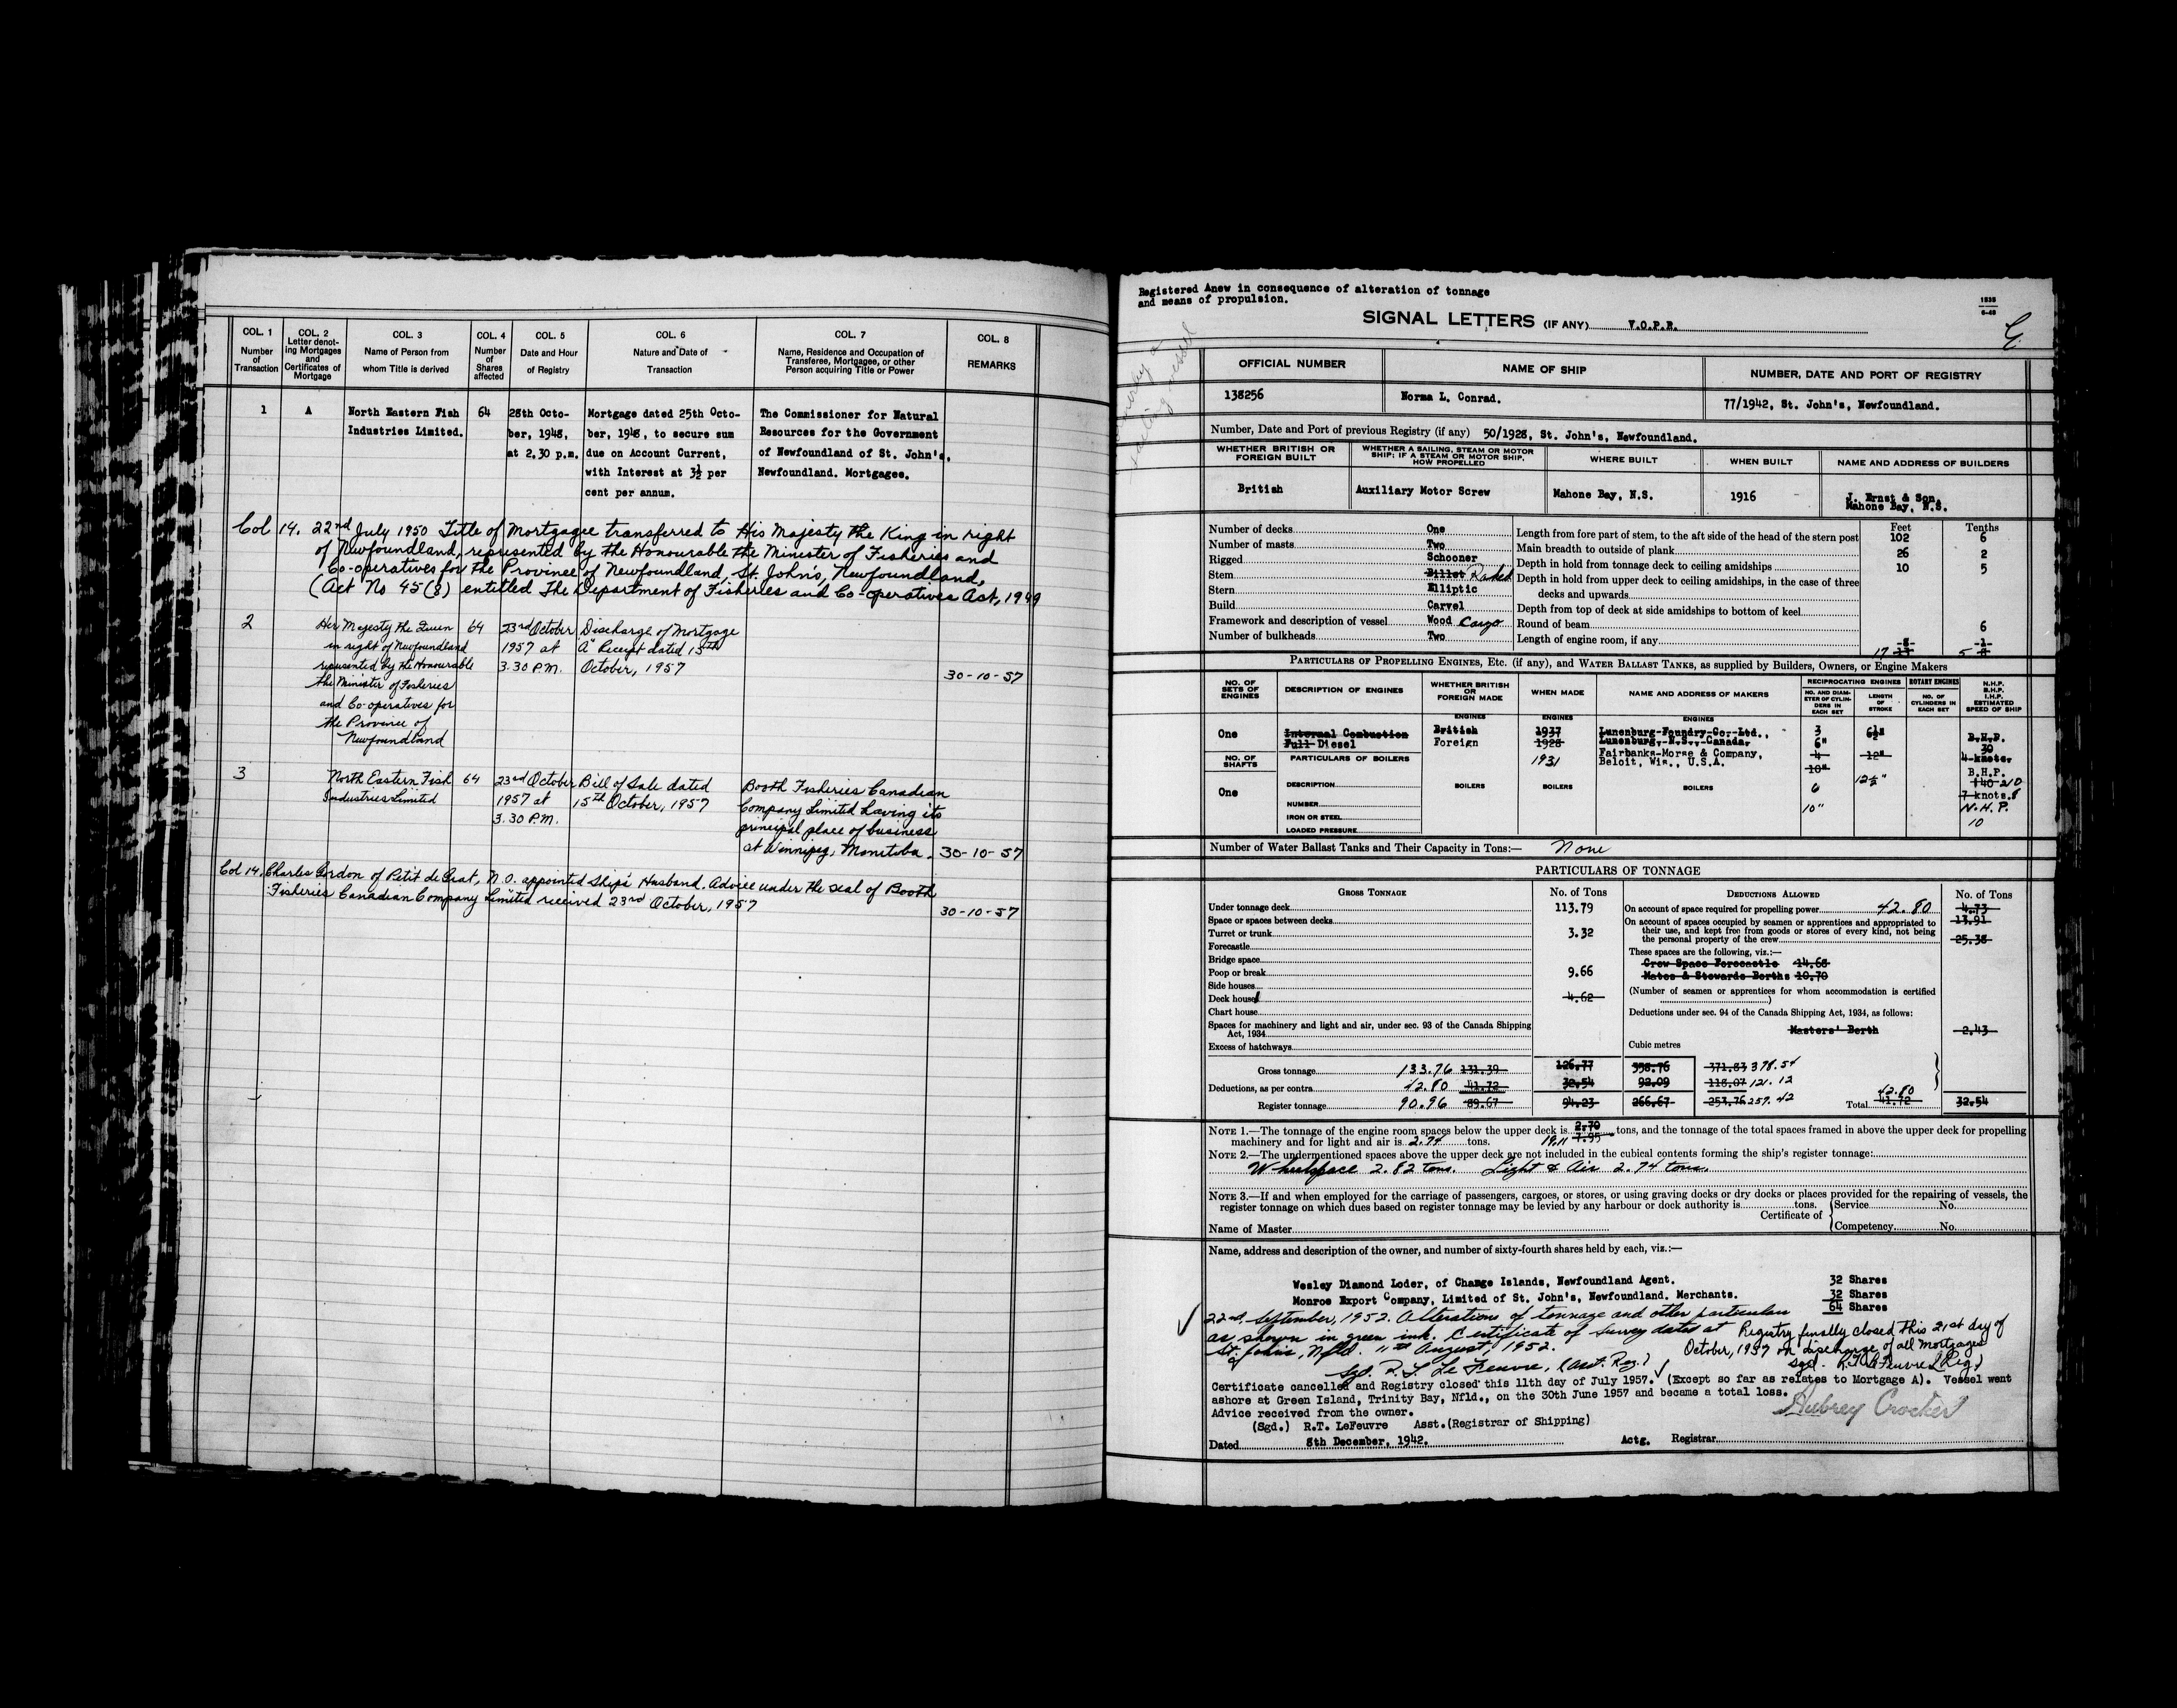 COL. 1 Number of Transaction
COL. 2 Letter denoting Mortgages and Certificates of Mortgage
COL. 3 Name of Person from whom Title is derived
COL. 4 Number of Shares affected
COL. 5 Date and Hour of Registry
COL. 6 Nature and Date of Transaction
COL. 7 Name, Residence and Occupation of Transferee, Mortgagee, or other Person acquiring Title or Power
COL. 8 REMARKS
1 A North Eastern Fish 64 28th Octo- Mortgage dated 25th Octo- The Commissioner for Natural
Industries Limited. ber, 1948, ber, 1948, to secure sum Resources for the Government
at 2.30 p.m. due on Account Current, of Newfoundland of St. John's,
with Interest at 3½ per Newfoundland. Mortgagee.
cent per annum.
Col 14. 22nd July 1950 Title of Mortgagee transferred to His Majesty the King in right
of Newfoundland, represented by the Honourable the Minister of Fisheries and
Co-operatives for the Province of Newfoundland, St. John's, Newfoundland,
(Act No 45(8) entitled The Department of Fisheries and Co-operatives Act, 1949
2 Her Majesty the Queen 64 23rd October Discharge of Mortgage
in right of Newfoundland 1957 at "A" Receipt dated 15th
represented by the Honourable 3.30 P.M. October, 1957 30-10-57
the Minister of Fisheries
and Co-operatives for
the Province of
Newfoundland
3 North Eastern Fish 64 23rd October Bill of Sale dated Booth Fisheries Canadian
Industries Limited 1957 at 15th October, 1957 Company Limited having its
3.30 P.M. principal place of business
at Winnipeg, Manitoba. 30-10-57
Col 14. Charles Gordon of Petit de Grat, N.S. appointed Ship's Husband. Advice under the seal of Booth
Fisheries Canadian Company Limited received 23rd October, 1957
30-10-57
Registered Anew in consequence of alteration of tonnage
and means of propulsion.
SIGNAL LETTERS (IF ANY) V.O.P.R.
OFFICIAL NUMBER NAME OF SHIP NUMBER, DATE AND PORT OF REGISTRY
138256 Norma L. Conrad. 77/1942, St. John's, Newfoundland.
Number, Date and Port of previous Registry (if any) 50/1928, St. John's, Newfoundland.
WHETHER BRITISH OR FOREIGN BUILT
WHETHER A SAILING, STEAM OR MOTOR SHIP; IF A STEAM OR MOTOR SHIP, HOW PROPELLED
WHERE BUILT
WHEN BUILT
NAME AND ADDRESS OF BUILDERS
British Auxiliary Motor Screw Mahone Bay, N.S. 1916 J. Ernst & Son,
Mahone Bay, N.S.
Feet Tenths
Number of decks One
Number of masts Two
Rigged Schooner
Stem Billet Raked
Stern Elliptic
Build Carvel
Framework and description of vessel Wood Cargo
Number of bulkheads Two
Length from fore part of stem, to the aft side of the head of the stern post 102 6
Main breadth to outside of plank 26 2
Depth in hold from tonnage deck to ceiling amidships 10 5
Depth in hold from upper deck to ceiling amidships, in the case of three
decks and upwards
Depth from top of deck at side amidships to bottom of keel
Round of beam 6
Length of engine room, if any 17 5
PARTICULARS OF PROPELLING ENGINES, Etc. (if any), and WATER BALLAST TANKS, as supplied by Builders, Owners, or Engine Makers
NO. OF SETS OF ENGINES
DESCRIPTION OF ENGINES
WHETHER BRITISH OR FOREIGN MADE
WHEN MADE
NAME AND ADDRESS OF MAKERS
RECIPROCATING ENGINES
ROTARY ENGINES
NO. AND DIAMETER OF CYLINDERS IN EACH SET
LENGTH OF STROKE
NO. OF CYLINDERS IN EACH SET
N.H.P. B.H.P. I.H.P. ESTIMATED SPEED OF SHIP
ENGINES ENGINES ENGINES
One Internal Combustion British 1937 Lunenburg Foundry Co. Ltd., 3 6½" B.H.P.
Full Diesel Foreign 1928 Lunenburg, N.S., Canada, 6" 30
1931 Fairbanks-Morse & Company, 4 12" 4 knots.
Beloit, Wis., U.S.A. 10" B.H.P.
NO. OF SHAFTS PARTICULARS OF BOILERS
One DESCRIPTION BOILERS BOILERS BOILERS 6 12½" 140 210
NUMBER 7 knots. 8
IRON OR STEEL 10" N.H.P.
LOADED PRESSURE 10
Number of Water Ballast Tanks and Their Capacity in Tons:— None
PARTICULARS OF TONNAGE
GROSS TONNAGE No. of Tons
Under tonnage deck 113.79
Space or spaces between decks
Turret or trunk 3.32
Forecastle
Bridge space
Poop or break 9.66
Side houses
Deck house 4.62
Chart house
Spaces for machinery and light and air, under sec. 93 of the Canada Shipping
Act, 1934
Excess of hatchways
Gross tonnage 133.76 131.39 126.77 358.76 371.83 378.54
Deductions, as per contra 42.80 41.72 32.54 92.09 118.07 121.12
Register tonnage 90.96 89.67 94.23 266.67 253.76 257.42
DEDUCTIONS ALLOWED No. of Tons
On account of space required for propelling power 42.80 4.73
On account of spaces occupied by seamen or apprentices and appropriated to 13.91
their use, and kept free from goods or stores of every kind, not being
the personal property of the crew 25.38
These spaces are the following, viz.:—
Crew Space Forecastle 14.68
Mates & Stewards Berths 10.70
(Number of seamen or apprentices for whom accommodation is certified
)
Deductions under sec. 94 of the Canada Shipping Act, 1934, as follows:
Masters' Berth 2.43
Cubic metres
Total 42.80 41.72 32.54
NOTE 1.—The tonnage of the engine room spaces below the upper deck is 2.70 tons, and the tonnage of the total spaces framed in above the upper deck for propelling
machinery and for light and air is 2.74 tons. 19.11 7.95
NOTE 2.—The undermentioned spaces above the upper deck are not included in the cubical contents forming the ship's register tonnage:
Wheelspace 2.82 tons. Light & Air 2.74 tons.
NOTE 3.—If and when employed for the carriage of passengers, cargoes, or stores, or using graving docks or dry docks or places provided for the repairing of vessels, the
register tonnage on which dues based on register tonnage may be levied by any harbour or dock authority is tons.
Name of Master Certificate of Service No.
Competency No.
Name, address and description of the owner, and number of sixty-fourth shares held by each, viz.:—
Wesley Diamond Loder, of Change Islands, Newfoundland Agent. 32 Shares
Monroe Export Company, Limited of St. John's, Newfoundland. Merchants. 32 Shares
64 Shares
22nd. September, 1952. Alterations of tonnage and other particulars
as shown in green ink. Certificate of Survey dated at
St. John's, Nfld. 11th August, 1952.
Sgd. R. T. Le Feuvre, (Asst. Reg.)
Registry finally closed this 21st day of
October, 1957 on discharge of all mortgages
sgd. R.T. LeFeuvre (Reg)
Certificate cancelled and Registry closed this 11th day of July 1957. (Except so far as relates to Mortgage A). Vessel went
ashore at Green Island, Trinity Bay, Nfld., on the 30th June 1957 and became a total loss.
Advice received from the owner.
(Sgd.) R.T. LeFeuvre Asst.(Registrar of Shipping)
Aubrey Crocker
Dated 8th December, 1942. Actg. Registrar